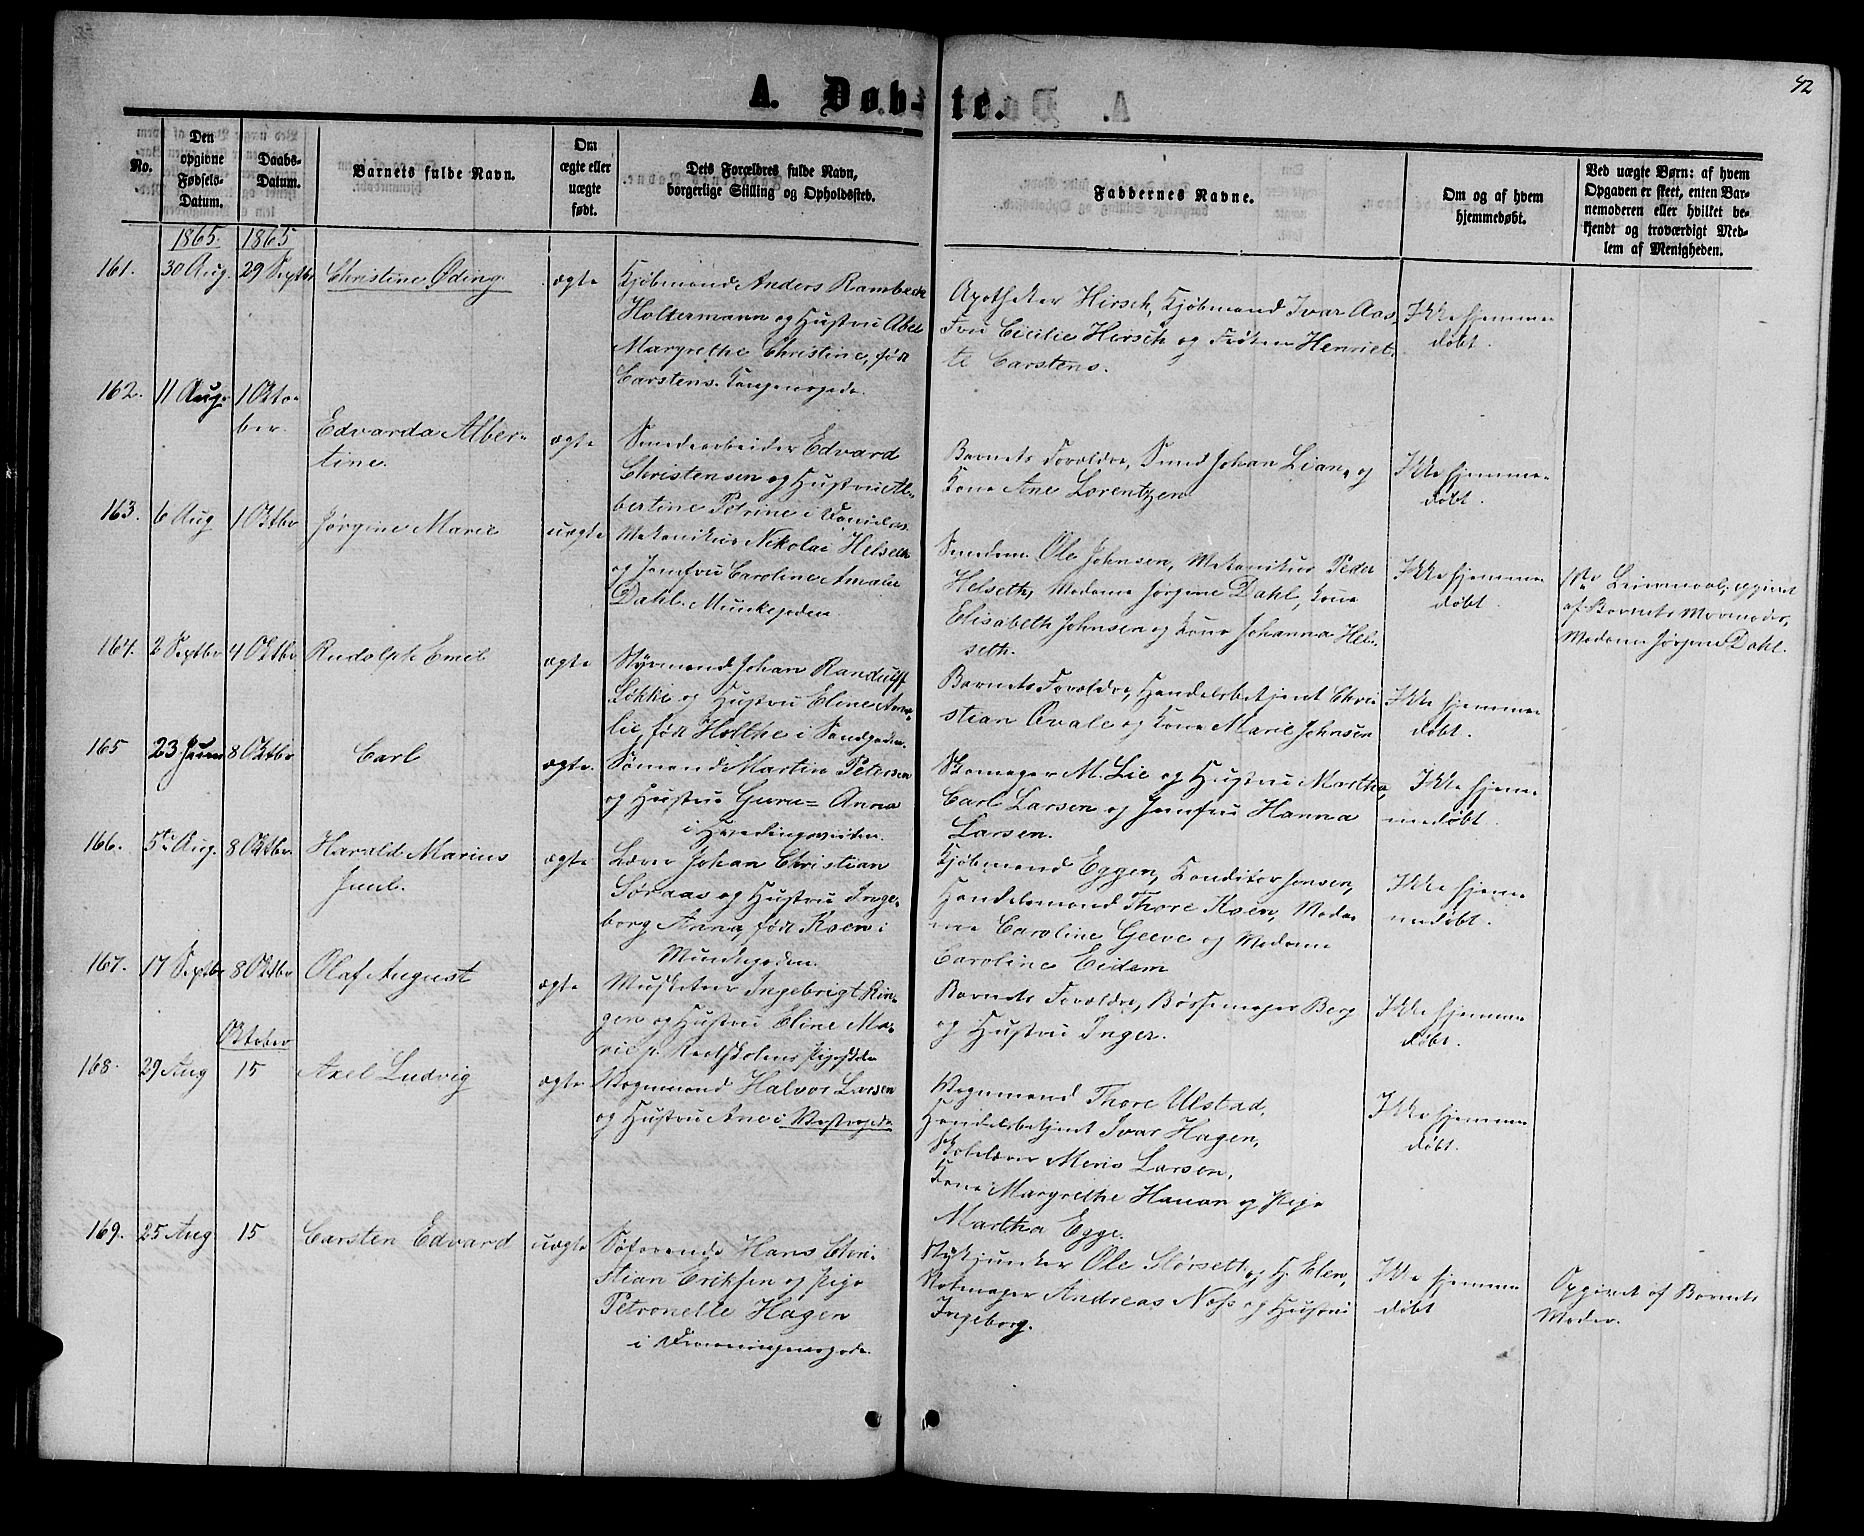 42
A. Døb-te.
No.
Den opgivne Fødsels-Datum.
Daabs-Datum.
Barnets fulde Navn.
Om ægte eller uægte født.
Dets Forældres fulde Navn, borgerlige Stilling og Opholdssted.
Faddernes Navne.
Om og af hvem hjemmedøbt.
Ved uægte Børn: af hvem Opgaven er skeet, enten Barnemoderen eller hvilket bekjendt og troværdigt Medlem af Menigheden.
1865. 1865
161. 30 Aug. 29 Septbr Christine Øding. ægte
Kjøbmand Anders Rambech
Holtermann og Hustru Abel
Margrethe Christine, født
Carstens. Kongensgade.
Apotheker Hirsch, Kjøbmand Ivar Aas,
Fru Cicilie Hirsch og Frøken Henriet-
te Carstens.
Ikke hjemme-
døbt.
162. 11 Aug. 1 Okto-
ber.
Edvarda Alber-
tine.
ægte
Smedearbeider Edvard
Christensen og Hustru Al-
bertine Petrine i
Barnets Forældre, Smed Johan Lian, og
Kone Ane Lorentzen
Ikke hjemme-
døbt.
163. 6 Aug 1 Oktbr Jørgine Marie uægte
Mekanikus Nikolai Helseth
og Jomfru Caroline Amalie
Dahl. Munkegaden
Smedsv. Ole Johnsen, Mekanikus Peder
Helseth, Madame Jørgine Dahl, Kone
Elisabeth Johnsen og Kone Johanna Hel-
seth.
Ikke hjemme-
døbt.
opgivet
af Barnets Mormoder,
Madame Jørgine Dahl.
164. 2 Septbr 4 Oktbr Rudolph Emil ægte
Styrmand Johan Randulff
Sikkie og Hustru Eline Ama-
lie, født Holthe i Sandgaden.
Barnets Forældre, Handelsbetjent Chri-
stian Qvale og Kone Marie Johnsen
Ikke hjemme-
døbt.
165 23 Juni 8 Oktbr Carl ægte.
Sømand Martin Petersen
og Hustru Guru= Anna
i Hvedingsveiten.
Skomager M. Lie og Hustru Martha,
Carl Larsen og Jomfru Hanna
Larsen.
Ikke hjem-
medøbt.
166. 5te Aug. 8 Oktbr Harald Marius
Juul.
ægte
Lærer Johan Christian
Søraas og Hustru Inge-
borg Anna, født Roen i
Munkegaden.
Kjøbmand Eggen, Konditor Jensen,
Handelsmand Thore Roen, Mada-
me Caroline Geeve og Madame
Caroline Eidem
Ikke hjem-
medøbt.
167. 17 Septbr 8 Oktbr Olaf August ægte
Musketeer Ingebrigt Rin-
gen og Hustru Eline Ma-
rie p.
Barnets Forældre, Bøssemager Berg
og Hustru Inger.
Ikke hjemme-
døbt.
Oktober
168. 29 Aug 15 Axel Ludvig ægte
Vognmand Halvor Larsen
og Hustru Ane i
Vognmand Thore Ulstad,
Handelsbetjent Ivar Hagen,
Larsen,
Kone Margrethe Hauan og Pige
Martha Egge.
Ikke hjemme-
døbt.
169. 25 Aug 15 Carsten Edvard uægte
Søfarende Hans Chri-
stian Eriksen og Pige
Petronelle Hagen
i
Stykjunker Ole Slørsett og H. Elen,
Andreas Noss og Hustru
Ingeborg.
Ikke hjemme-
døbt
Opgivet af Barnets
Moder.